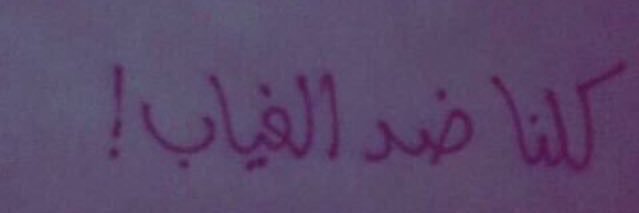 كلنا ضد الغياب!